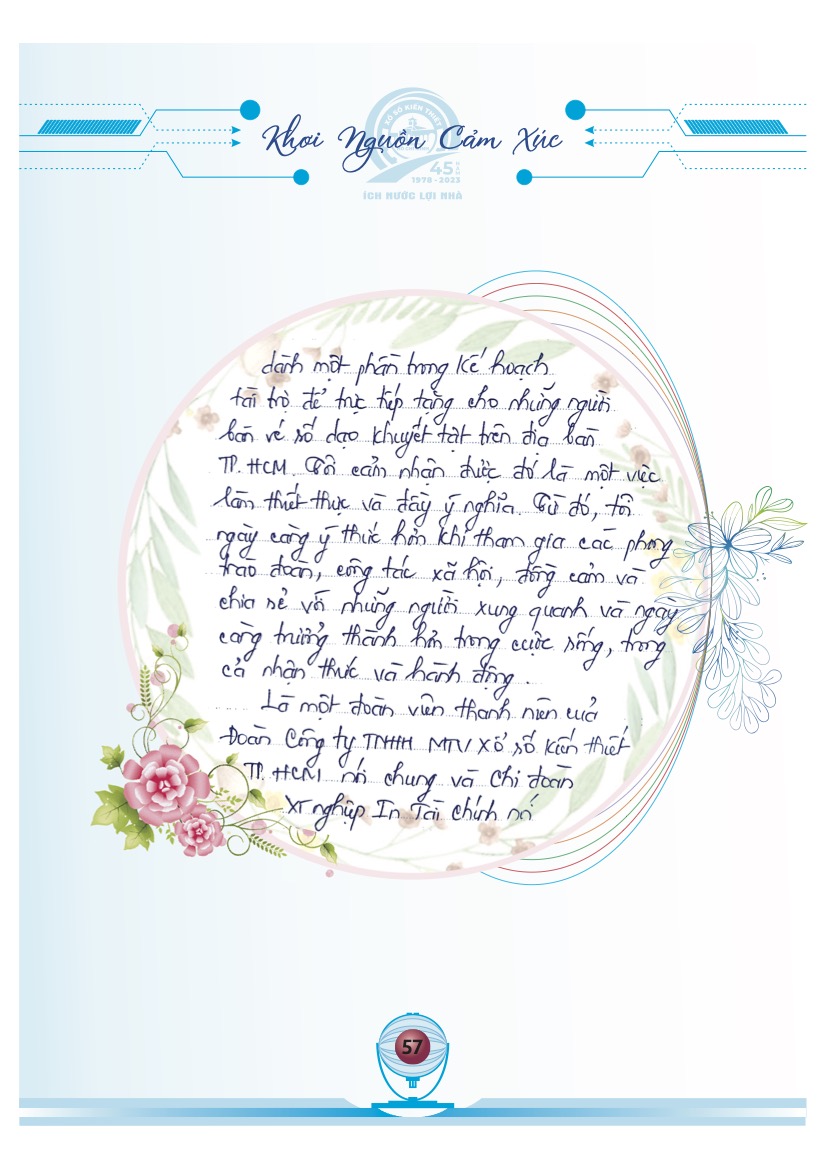 Khơi Nguồn Cảm Xúc
XỔ SỐ KIẾN THIẾT
45 NĂM
1978 - 2023
ÍCH NƯỚC LỢI NHÀ
dành một phần trong kế hoạch
tài trợ để trực tiếp tặng cho những người
bán vé số dạo khuyết tật trên địa bàn
TP. HCM. Tôi cảm nhận được đó là một việc
làm thiết thực và đầy ý nghĩa. Từ đó, tôi
ngày càng ý thức hơn khi tham gia các phong
trào đoàn, công tác xã hội, đồng cảm và
chia sẻ với những người xung quanh và ngày
càng trưởng thành hơn trong cuộc sống, trong
cả nhận thức và hành động.
Là một đoàn viên thanh niên của
Đoàn Công ty TNHH MTV Xổ số kiến thiết
TP. HCM nói chung và Chi đoàn
Xí nghiệp In Tài chính nói
57